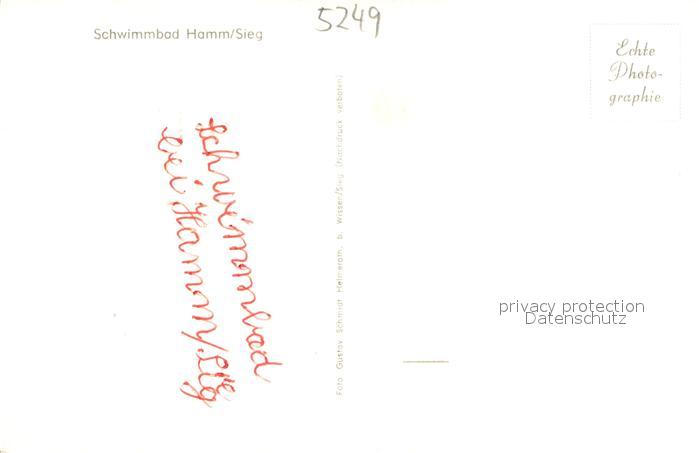 5249
Schwimmbad Hamm/Sieg
Echte
Photo-
graphie
Schwimmbad
bei Hamm/Sieg
Foto Gustav Schmidt Helmeroth, b. Wissen/Sieg (Nachdruck verboten)
privacy protection
Datenschutz